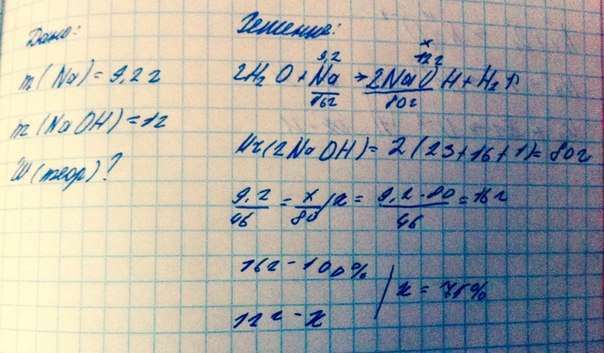 Дано:
m(Na)=9,2г
m(NaOH)=12
W(теор)?
Решение:
9,2 x 12г
2H₂O + Na → 2NaOH + H₂↑
46г 80г
Mr(2NaOH) = 2(23+16+1)=80г
9,2/46 = x/80 / x = 9,2·80/46 = 16г
16г - 100%
12г - x / x = 75%